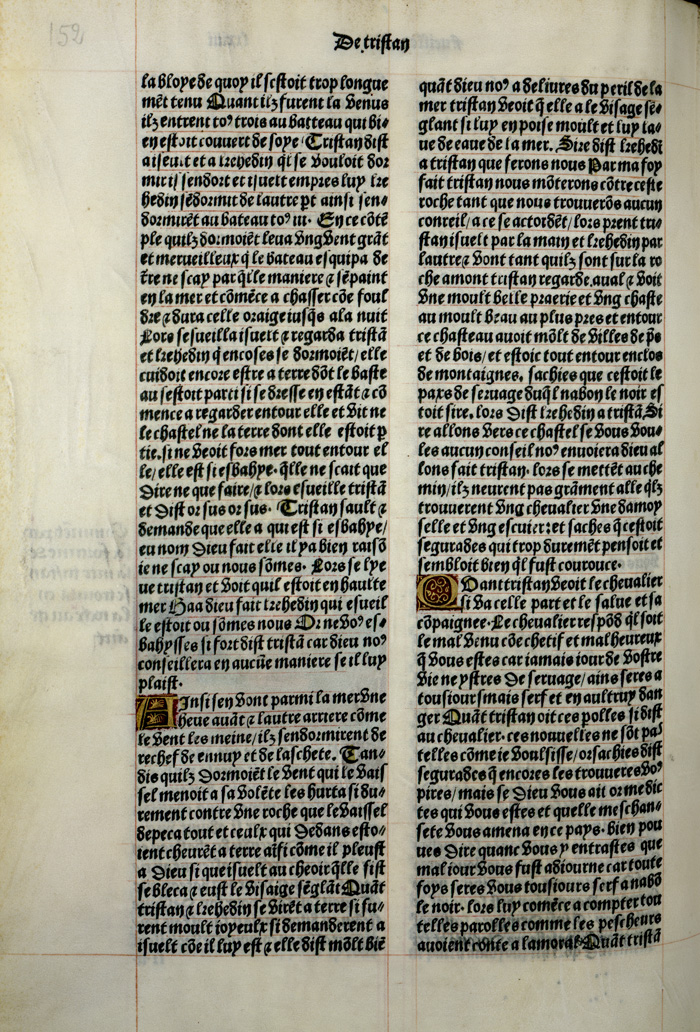 152
De tristan
la bloye de quoy il sestoit trop longue
mēt tenu Quant ilz furent la venus
ilz entrent to⁹ trois au batteau qui bi⸗
en estoit couuert de soye Tristan dist
a iseult et a kehedin q̄l se vouloit dor
mir il sendort et iseult empres luy ke
hedin sendormit de lautre pt ainsi sen⸗
dormirēt au bateau to⁹ iii. En ce cōtē
ple quilz dormoiēt leua vng vent grāt
et merueilleux q̄ le bateau esquipa de
t̄re ne scay par q̄lle maniere & sēpaint
en la mer et cōmēce a chasser cōe foul
dre & dura celle oraige iusq̄s a la nuit
Lors se sueilla iseult & regarda tristā
et kehedin q̄ encoses se dormoiēt/elle
cuidoit encore estre a terre dōt le baste
au sestoit parti si se dresse en estāt & cō
mence a regarder entour elle et vit ne
le chastel ne la terre dont elle estoit p
tie.si ne veoit fors mer tout entour el
le/elle est si esbahye. q̄lle ne scait que
dire ne que faire/& lors esueille tristā
et dist or sus or sus. Tristan sault &
demande que elle a qui est si esbahye/
eu nom dieu fait elle il ya bien raisō
ie ne scay ou nous sōmes. Lors se lye
ue tristan et voit quil estoit en haulte
mer Haa dieu fait kehedin qui esueil
le estoit ou sōmes nous Or ne vo⁹ es⸗
bahysses si fort dist tristā car dieu no⁹
conseillera en aucūe maniere se il luy
plaist.
AInsi sen vont parmi la mer vne
heue auāt & lautre arriere cōme
le vent les meine/ilz sendormirent de
rechef de ennuy et de laschete. Tan⸗
dis quilz dormoiēt le vent qui le vais
sel menoit a sa volēte les hurta si du⸗
rement contre vne roche que le vaissel
depeca tout et ceulx qui dedans esto⸗
ient cheurēt a terre aīsi cōme il pleust
a dieu si que isuelt au cheoir q̄lle fist
se bleca & eust le visaige sēglāt Quāt
tristan & kehedin se virēt a terre si fu⸗
rent moult ioyeulx si demanderent a
isuelt cōe il luy est & elle dist mōlt biē
quāt dieu no⁹ a deliures du peril de la
mer tristan veoit q̄ elle a le visage sē⸗
glant si luy en poise moult et luy la⸗
ue de eaue de la mer. Sire dist kehedī
a tristan que ferons nous Par ma foy
fait tristan nous mōterons cōtre ceste
roche tant que nous trouuerōs aucun
conreil/a ce se actordēt/lors prent tri⸗
stan isuelt par la main et kehedin par
lautre & vont tant quilz sont sur la ro
che amont tristan regarde.aual & voit
vne moult belle praerie et vng chaste
au moult beau au plus pres et entour
ce chasteau auoit mōlt de villes de p̄s
et de bois/et estoit tout entour enclos
de montaignes. sachies que cestoit le
pays de seruage duq̄l nabon le noir es
toit sire. lors dist kehedin a tristā.Si
re allons vers ce chastel se vous vou⸗
les aucun conseil no⁹ enuoiera dieu al
lons fait tristan. lors se mettēt au che
min/ilz neurent pas grāment alle q̄lz
trouuerent vng cheualier vne damoy
selle et vng escuier:et saches q̄ cestoit
segurades qui trop duremēt pensoit et
sembloit biē q̄l fust courouce.
QVant tristan veoit le cheualier
si va celle part et le salue et sa
cōpaignee.Le cheualier respōd q̄l soit
le mal venu cōe chetif et malheureux
q̄ vous estes car iamais iour de vostre
vie ne ystres de seruage/ains seres a
tousiours mais serf et en aultruy dan
ger Quāt tristan oit ces polles si dist
au cheualier.ces nouuelles ne sōt pas
telles cōme ie voulsisse/or sachies dist
segurades q̄ encores les trouueres vo⁹
pires/mais se dieu vous ait or me dic
tes qui vous estes et quelle meschan⸗
sete vous amena en ce pays. bien pou
ues dire quanc vous y entrastes que
mal iour vous fust adiourne car toute
foys seres vous tousiours serf a nabō
le noir. lors luy comēce a compter tou
telles parolles comme les pescheurs
auoient conte a lamoral Quāt tristā